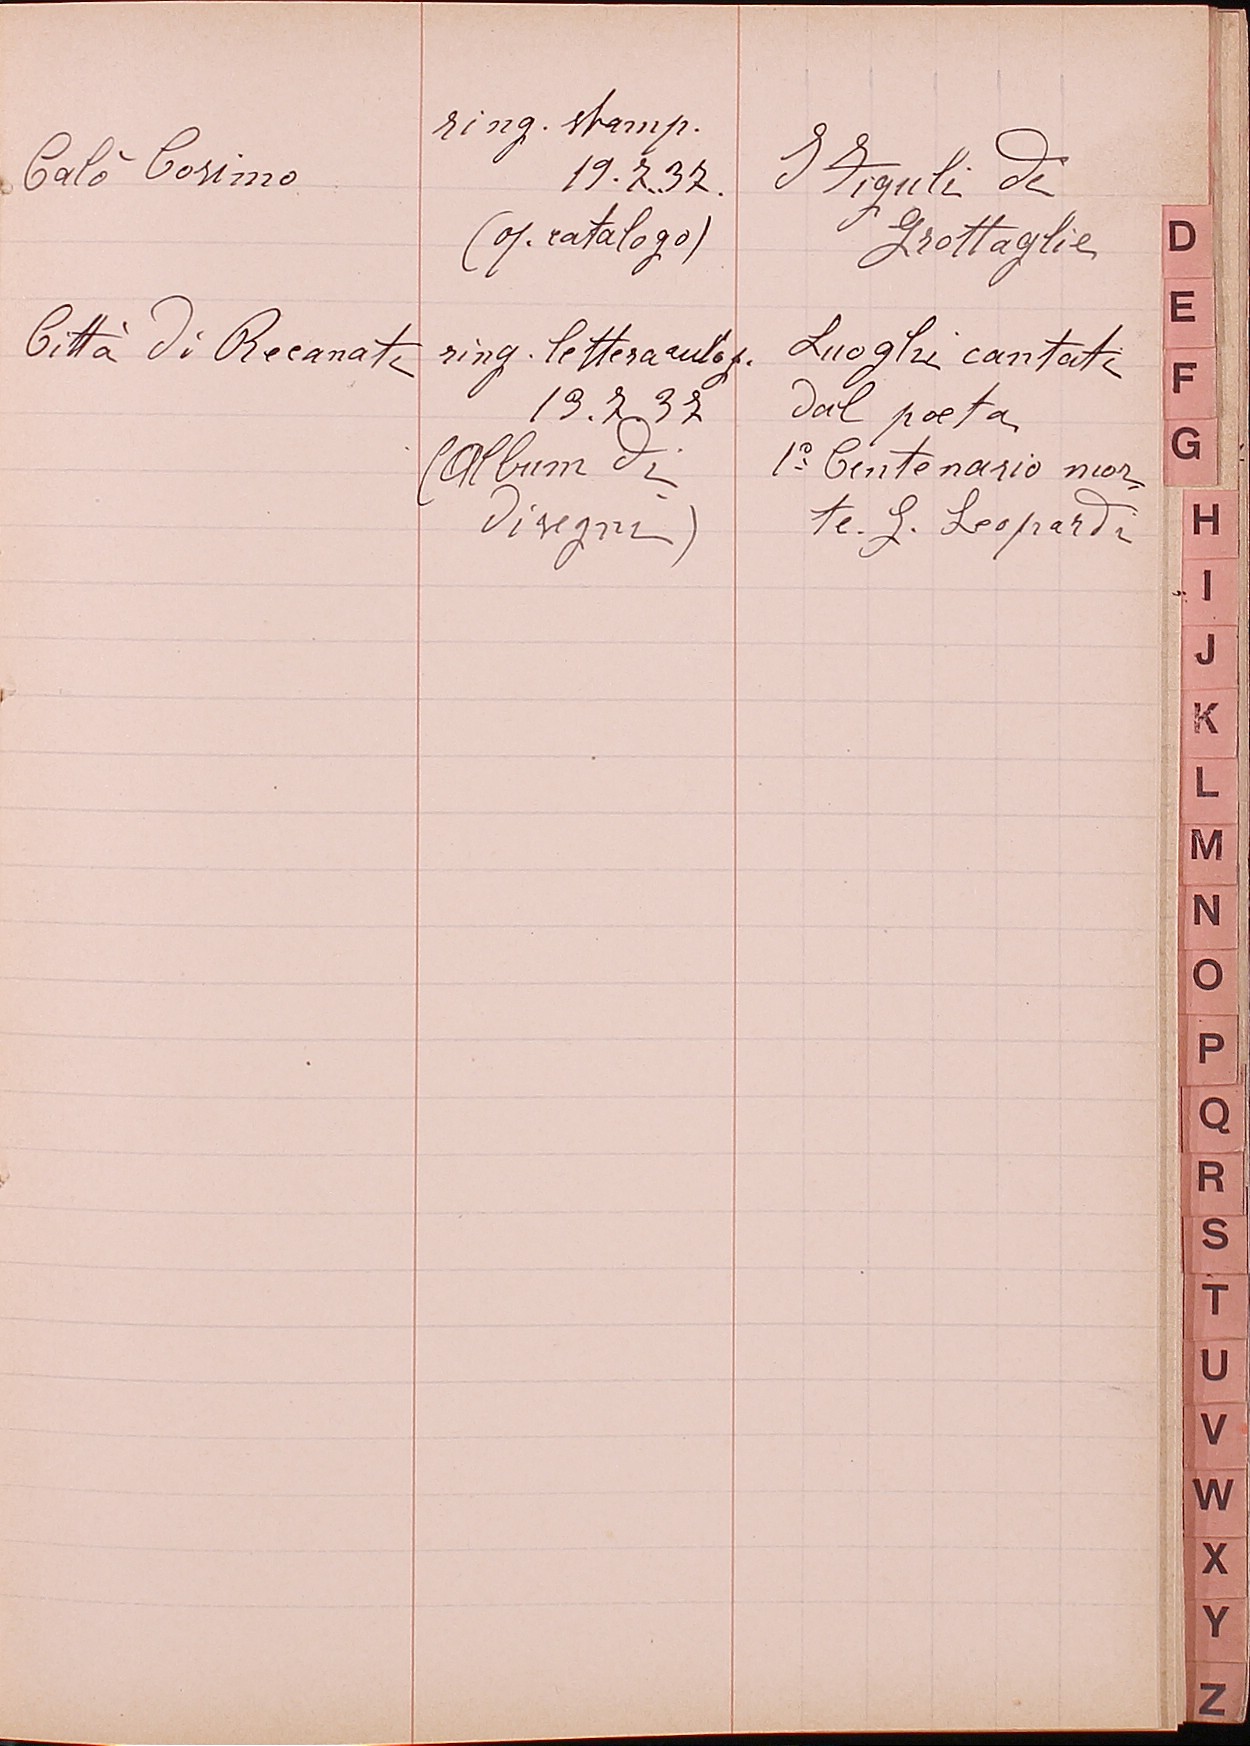 Calò Cosimo
ring. stamp.
19.7.37.
(op. catalogo)
I Figuli di
Grottaglie
Città di Recanati
ring. lettera autog.
13.7.37
(Album di
disegni)
Luoghi cantati
dal poeta
1º Centenario mor-
te. G. Leopardi
D
E
F
G
H
I
J
K
L
M
N
O
P
Q
R
S
T
U
V
W
X
Y
Z